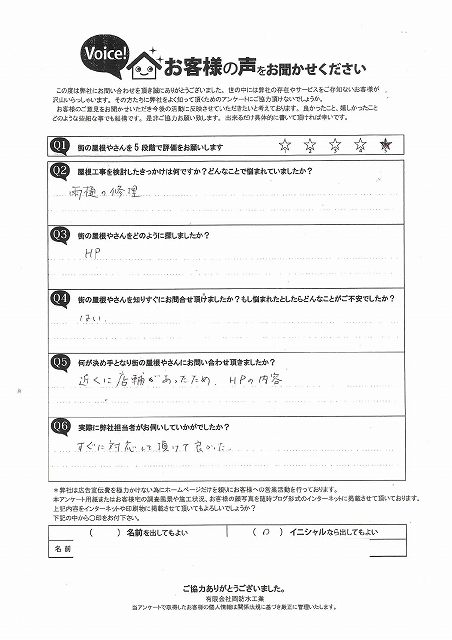 Voice! お客様の声をお聞かせください
この度は弊社にお問い合わせを頂き誠にありがとうございました。世の中には弊社の存在やサービスをご存知ないお客様が
沢山いらっしゃいます。その方たちに弊社をよく知って頂くためのアンケートにご協力頂けないでしょうか。
お客様のご意見をお聞かせいただき今後の活動に反映させていただきたいと考えております。良かったこと、嬉しかったこと
どのような些細な事でも結構です。是非ご協力お願い致します。出来るだけ具体的に書いて頂ければ幸いです。
Q1 街の屋根やさんを5段階で評価をお願いします ☆ ☆ ☆ ☆ ★
Q2 屋根工事を検討したきっかけは何ですか?どんなことで悩まれていましたか?
雨樋の修理
Q3 街の屋根やさんをどのように探しましたか?
HP
Q4 街の屋根やさんを知りすぐにお問合せ頂けましたか?もし悩まれたとしたらどんなことがご不安でしたか?
はい.
Q5 何が決め手となり街の屋根やさんにお問い合わせ頂きましたか?
近くに店舗があったため. HPの内容
Q6 実際に弊社担当者がお伺いしていかがでしたか?
すぐに対応して頂けて良かった.
*弊社は広告宣伝費を極力かけない為にホームページだけを頼りにお客様への営業活動を行っております。
本アンケート用紙またはお客様宅の調査風景や施工状況、お客様の顔写真を随時ブログ形式のインターネットに掲載させて頂いております。
上記内容をインターネットや印刷物に掲載させて頂いてもよろしいでしょうか?
下記の中から〇印をお付下さい。
( ) 名前を出してもよい ( 〇 ) イニシャルなら出してもよい
名前
ご協力ありがとうございました。
有限会社岡防水工業
当アンケートで取得したお客様の個人情報は関係法規に基づき厳正に管理いたします。